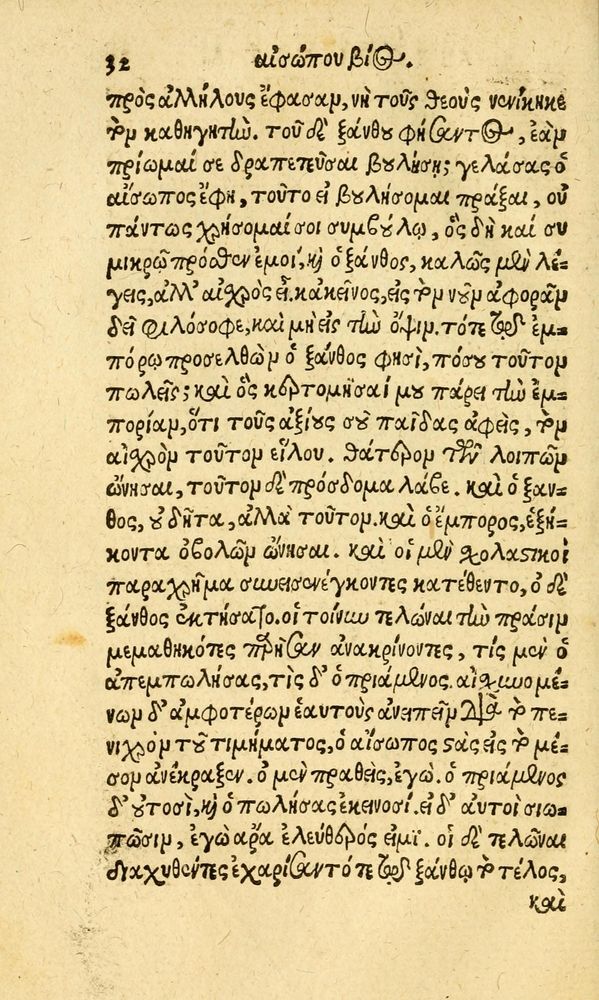 32 αἰσώπου βίος.
πρὸς ἀλλήλους ἔφασαν, νὴ τοὺς θεοὺς νενίκηκε
τὸν καθηγητὴν. τοῦ δὲ ξάνθου φήσαντος, ἐὰν
πρίωμαί σε δραπετεῦσαι βουλήσῃ; γελάσας ὁ
αἴσωπος ἔφη, τοῦτο εἰ βουλήσομαι πρᾶξαι, οὐ
πάντως χρήσομαί σοι συμβούλῳ, ὃς δὴ καί συ
μικρῷ πρόσθεν ἐμοί, καὶ ὁ ξάνθος, καλῶς μὲν λέ-
γεις, ἀλλ' αἰσχρὸς εἶ. κἀκεῖνος, εἰς τὸν νοῦν ἀφορᾶν
δεῖ φιλόσοφε, καὶ μὴ εἰς τὴν ὄψιν. τότε τῷ ἐμ-
πόρῳ προσελθὼν ὁ ξάνθος φησὶ, πόσου τοῦτον
πωλεῖς; καὶ ὃς κερτομῆσαί μου πάρει τὴν ἐμ-
πορίαν, ὅτι τοὺς ἀξίους σοῦ παῖδας ἀφεὶς, τὸν
αἰσχρὸν τοῦτον εἵλου. θάτερον τῶν λοιπῶν
ὤνησαι, τοῦτον δὲ πρόσδομα λάβε. καὶ ὁ ξαν-
θος, οὐ δῆτα, ἀλλὰ τοῦτον. καὶ ὁ ἔμπορος, ἑξή-
κοντα ὀβολῶν ὤνησαι. καὶ οἱ μὲν σχολαστικοὶ
παραχρῆμα συνεισενέγκοντες κατέθεντο, ὁ δὲ
ξάνθος ἐκτήσατο. οἱ τοίνυν τελῶναι τὴν πράσιν
μεμαθηκότες παρῆσαν ἀνακρίνοντες, τίς μεν ὁ
ἀπεμπωλήσας, τὶς δ' ὁ πριάμενος. αἰσχυνομέ-
νων δ' ἀμφοτέρων ἑαυτοὺς ἀνειπεῖν διὰ τὸ πε-
νιχρὸν τοῦ τιμήματος, ὁ αἴσωπος στὰς εἰς τὸ μέ-
σον ἀνέκραξεν. ὁ μεν πραθεὶς, ἐγώ. ὁ πριάμενος
δ' οὑτοσὶ, καὶ ὁ πωλήσας ἐκεινοσί. εἰ δ' αὐτοὶ σιω-
πῶσιν, ἐγὼ ἄρα ἐλεύθερός εἰμι. οἱ δὲ τελῶναι
διαχυθέντες ἐχαρίσαντό τε τῷ ξάνθῳ τὸ τέλος,
καὶ